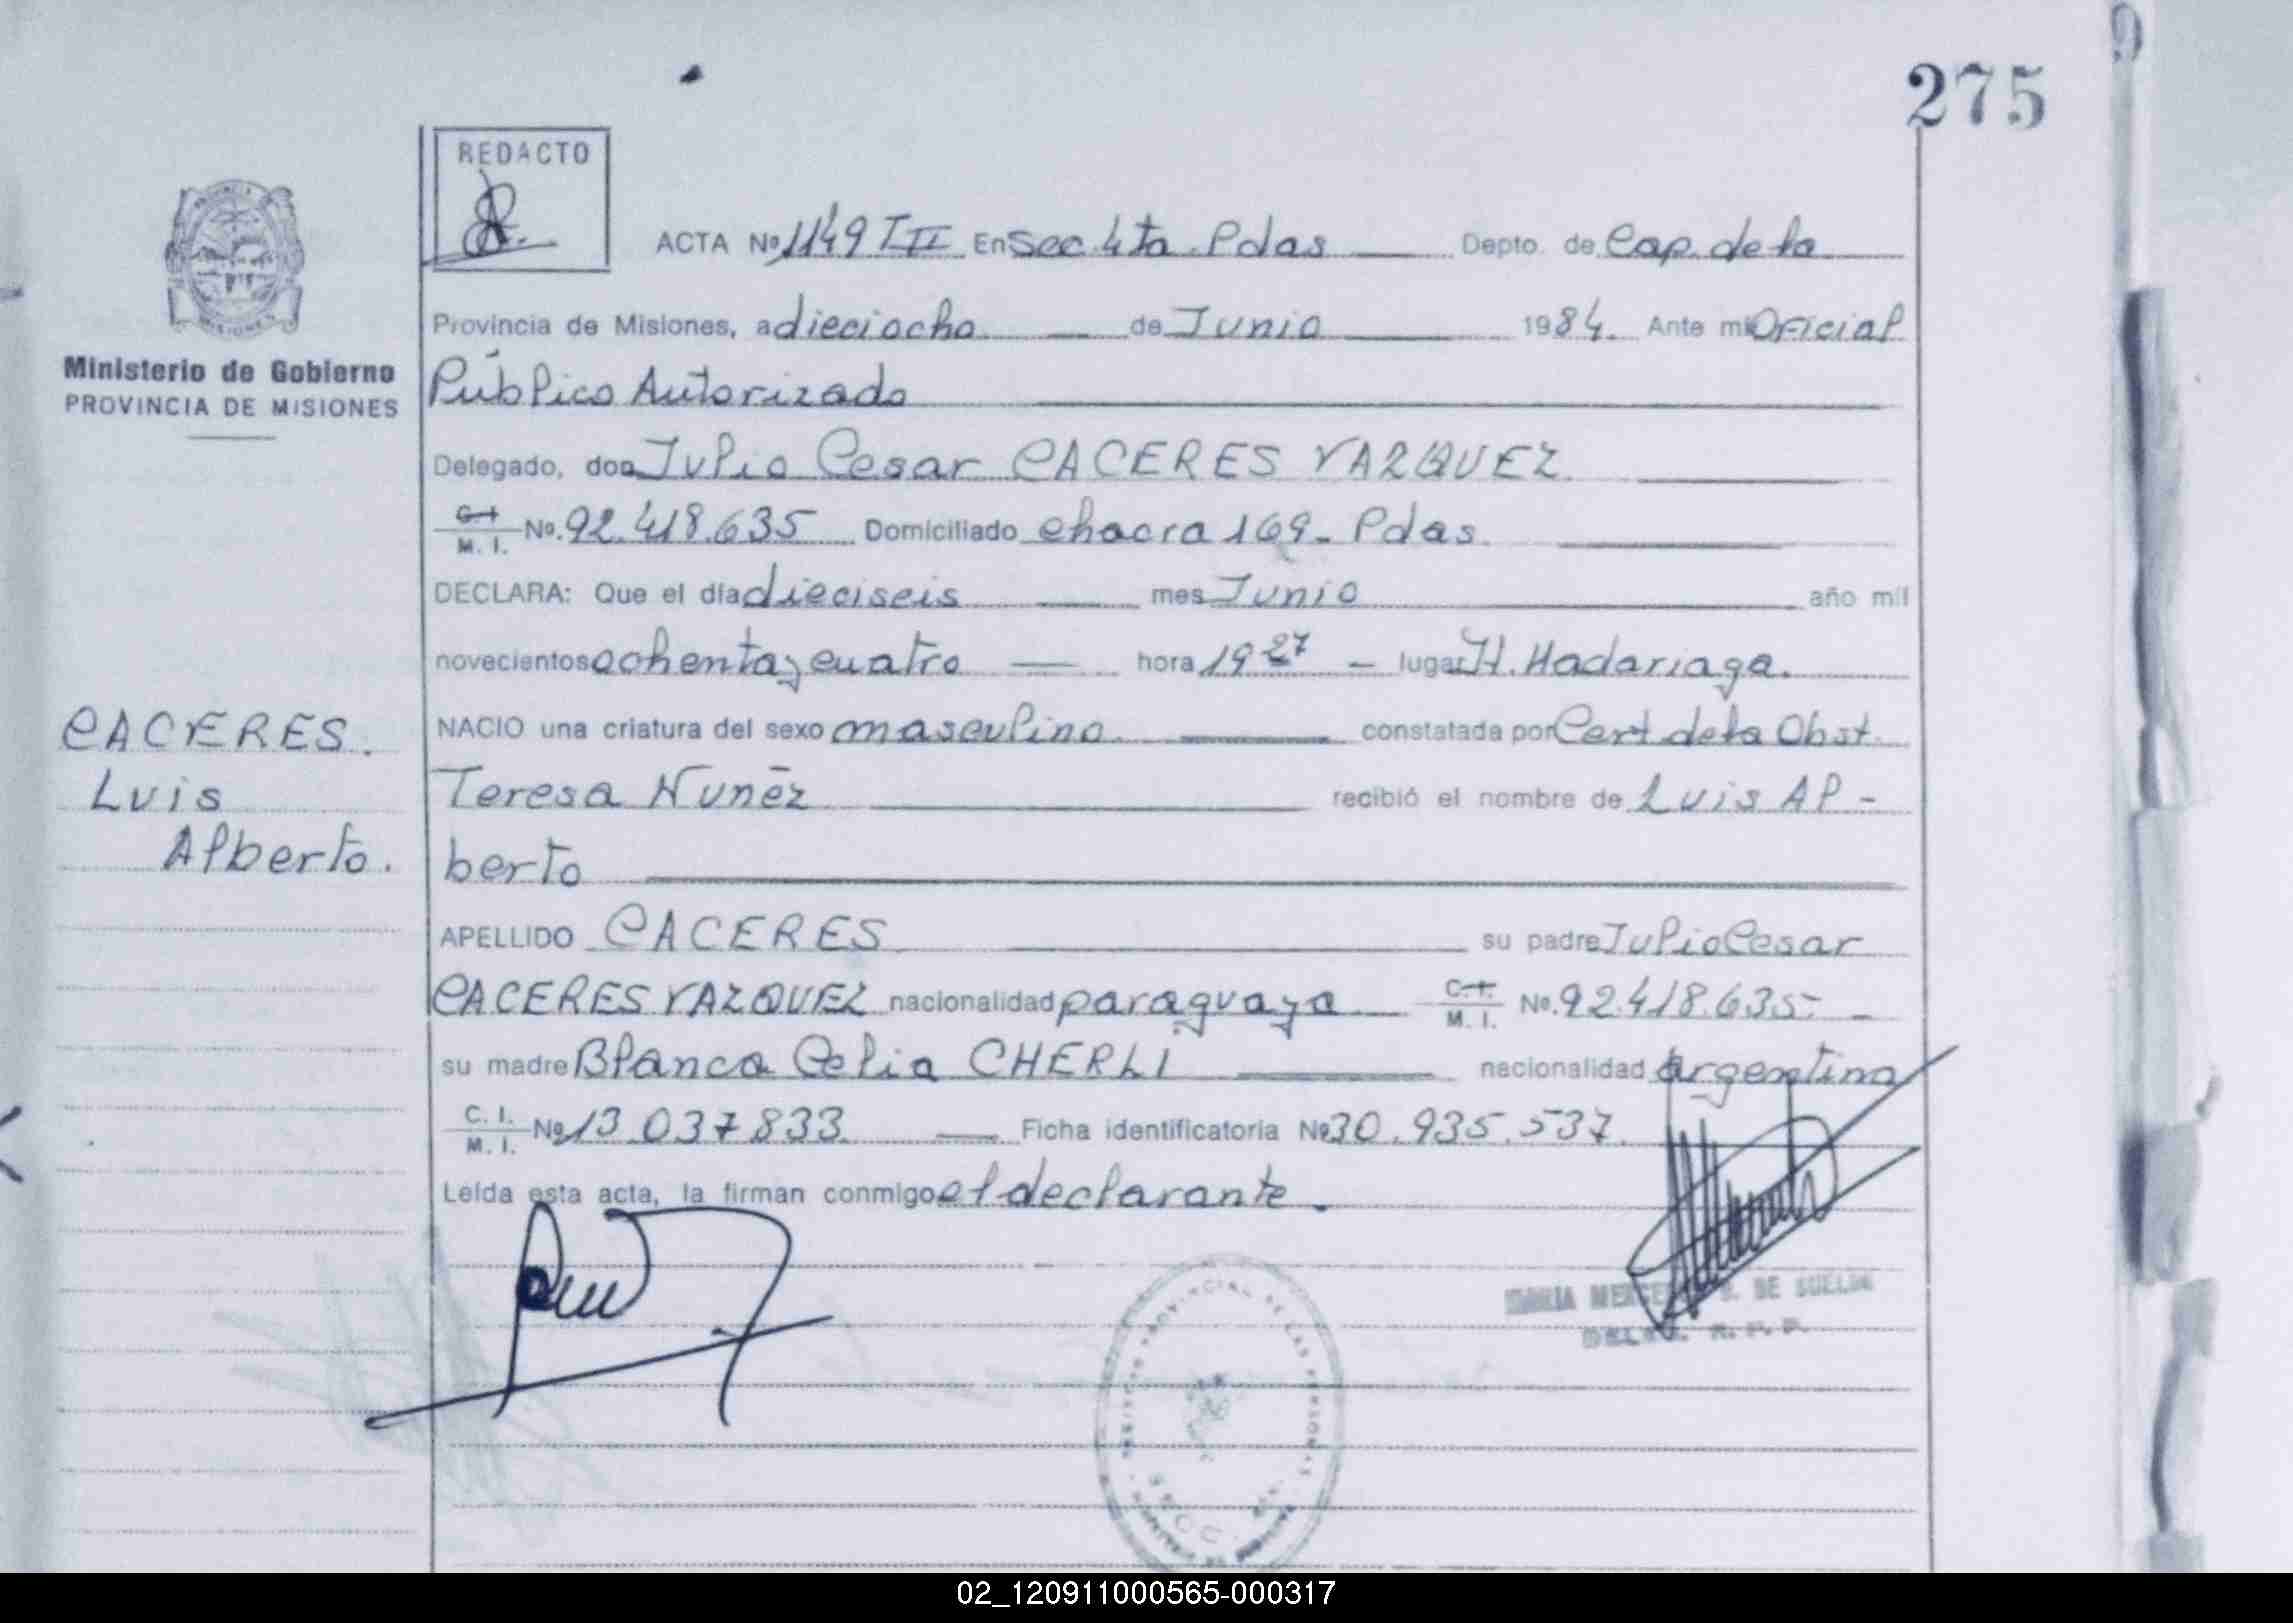 275
REDACTO
ACTA Nº 1149 T III En Sec. 4ta. Pdas Depto. de Cap. de la
Provincia de Misiones, a dieciocho de Junio 1984. Ante mi Oficial
Público Autorizado
Delegado, don Julio Cesar CACERES VAZQUEZ.
C. I. / M. I. Nº. 92.418.635 Domiciliado chacra 169 - Pdas.
DECLARA: Que el día dieciseis mes Junio año mil
novecientos ochenta y cuatro hora 19 27 - lugar H. Madariaga.
NACIO una criatura del sexo masculino constatada por Cert de la Obst.
Teresa Nuñez recibió el nombre de Luis Al-
berto
APELLIDO CACERES su padre Julio Cesar
CACERES VAZQUEZ nacionalidad paraguaya C. I. / M. I. Nº. 92.418.635-
su madre Blanca Celia CHERLI nacionalidad argentina
C. I. / M. I. Nº 13 037 833 Ficha identificatoria Nº 30.935.537.
Leída esta acta, la firman conmigo el declarante.
Ministerio de Gobierno
PROVINCIA DE MISIONES
CACERES.
Luis
Alberto.
DE SUELDO
02_120911000565-000317